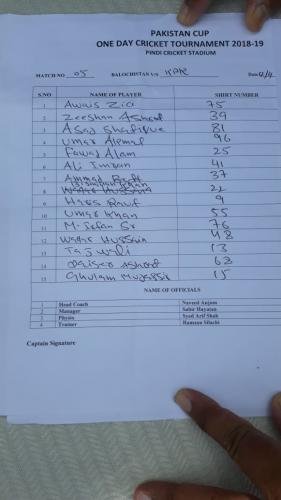 PAKISTAN CUP
ONE DAY CRICKET TOURNAMENT 2018-19
PINDI CRICKET STADIUM
MATCH NO 05 BALOCHISTAN V/S KPK Date
S.NO NAME OF PLAYER SHIRT NUMBER
1 Awais Zia 75
2 Zeeshan Ashraf 39
3 Asad Shafique 81
4 Umar Akmal 96
5 Fawad Alam 25
6 Ali Imran 41
7 Ammad Butt 37
8 Khan 22
9 Haris Rauf 9
10 Umar Khan 55
11 M. Irfan Sr 76
12 Waqar Hussain 48
13 Taj Wali 13
14 Qaiser Ashraf 68
15 Ghulam Mudassir 15
NAME OF OFFICIALS
1 Head Coach Naveed Anjum
2 Manager Sabir Hayatan
3 Physio Syed Arif Shah
4 Trainer Ramzan Silachi
Captain Signature